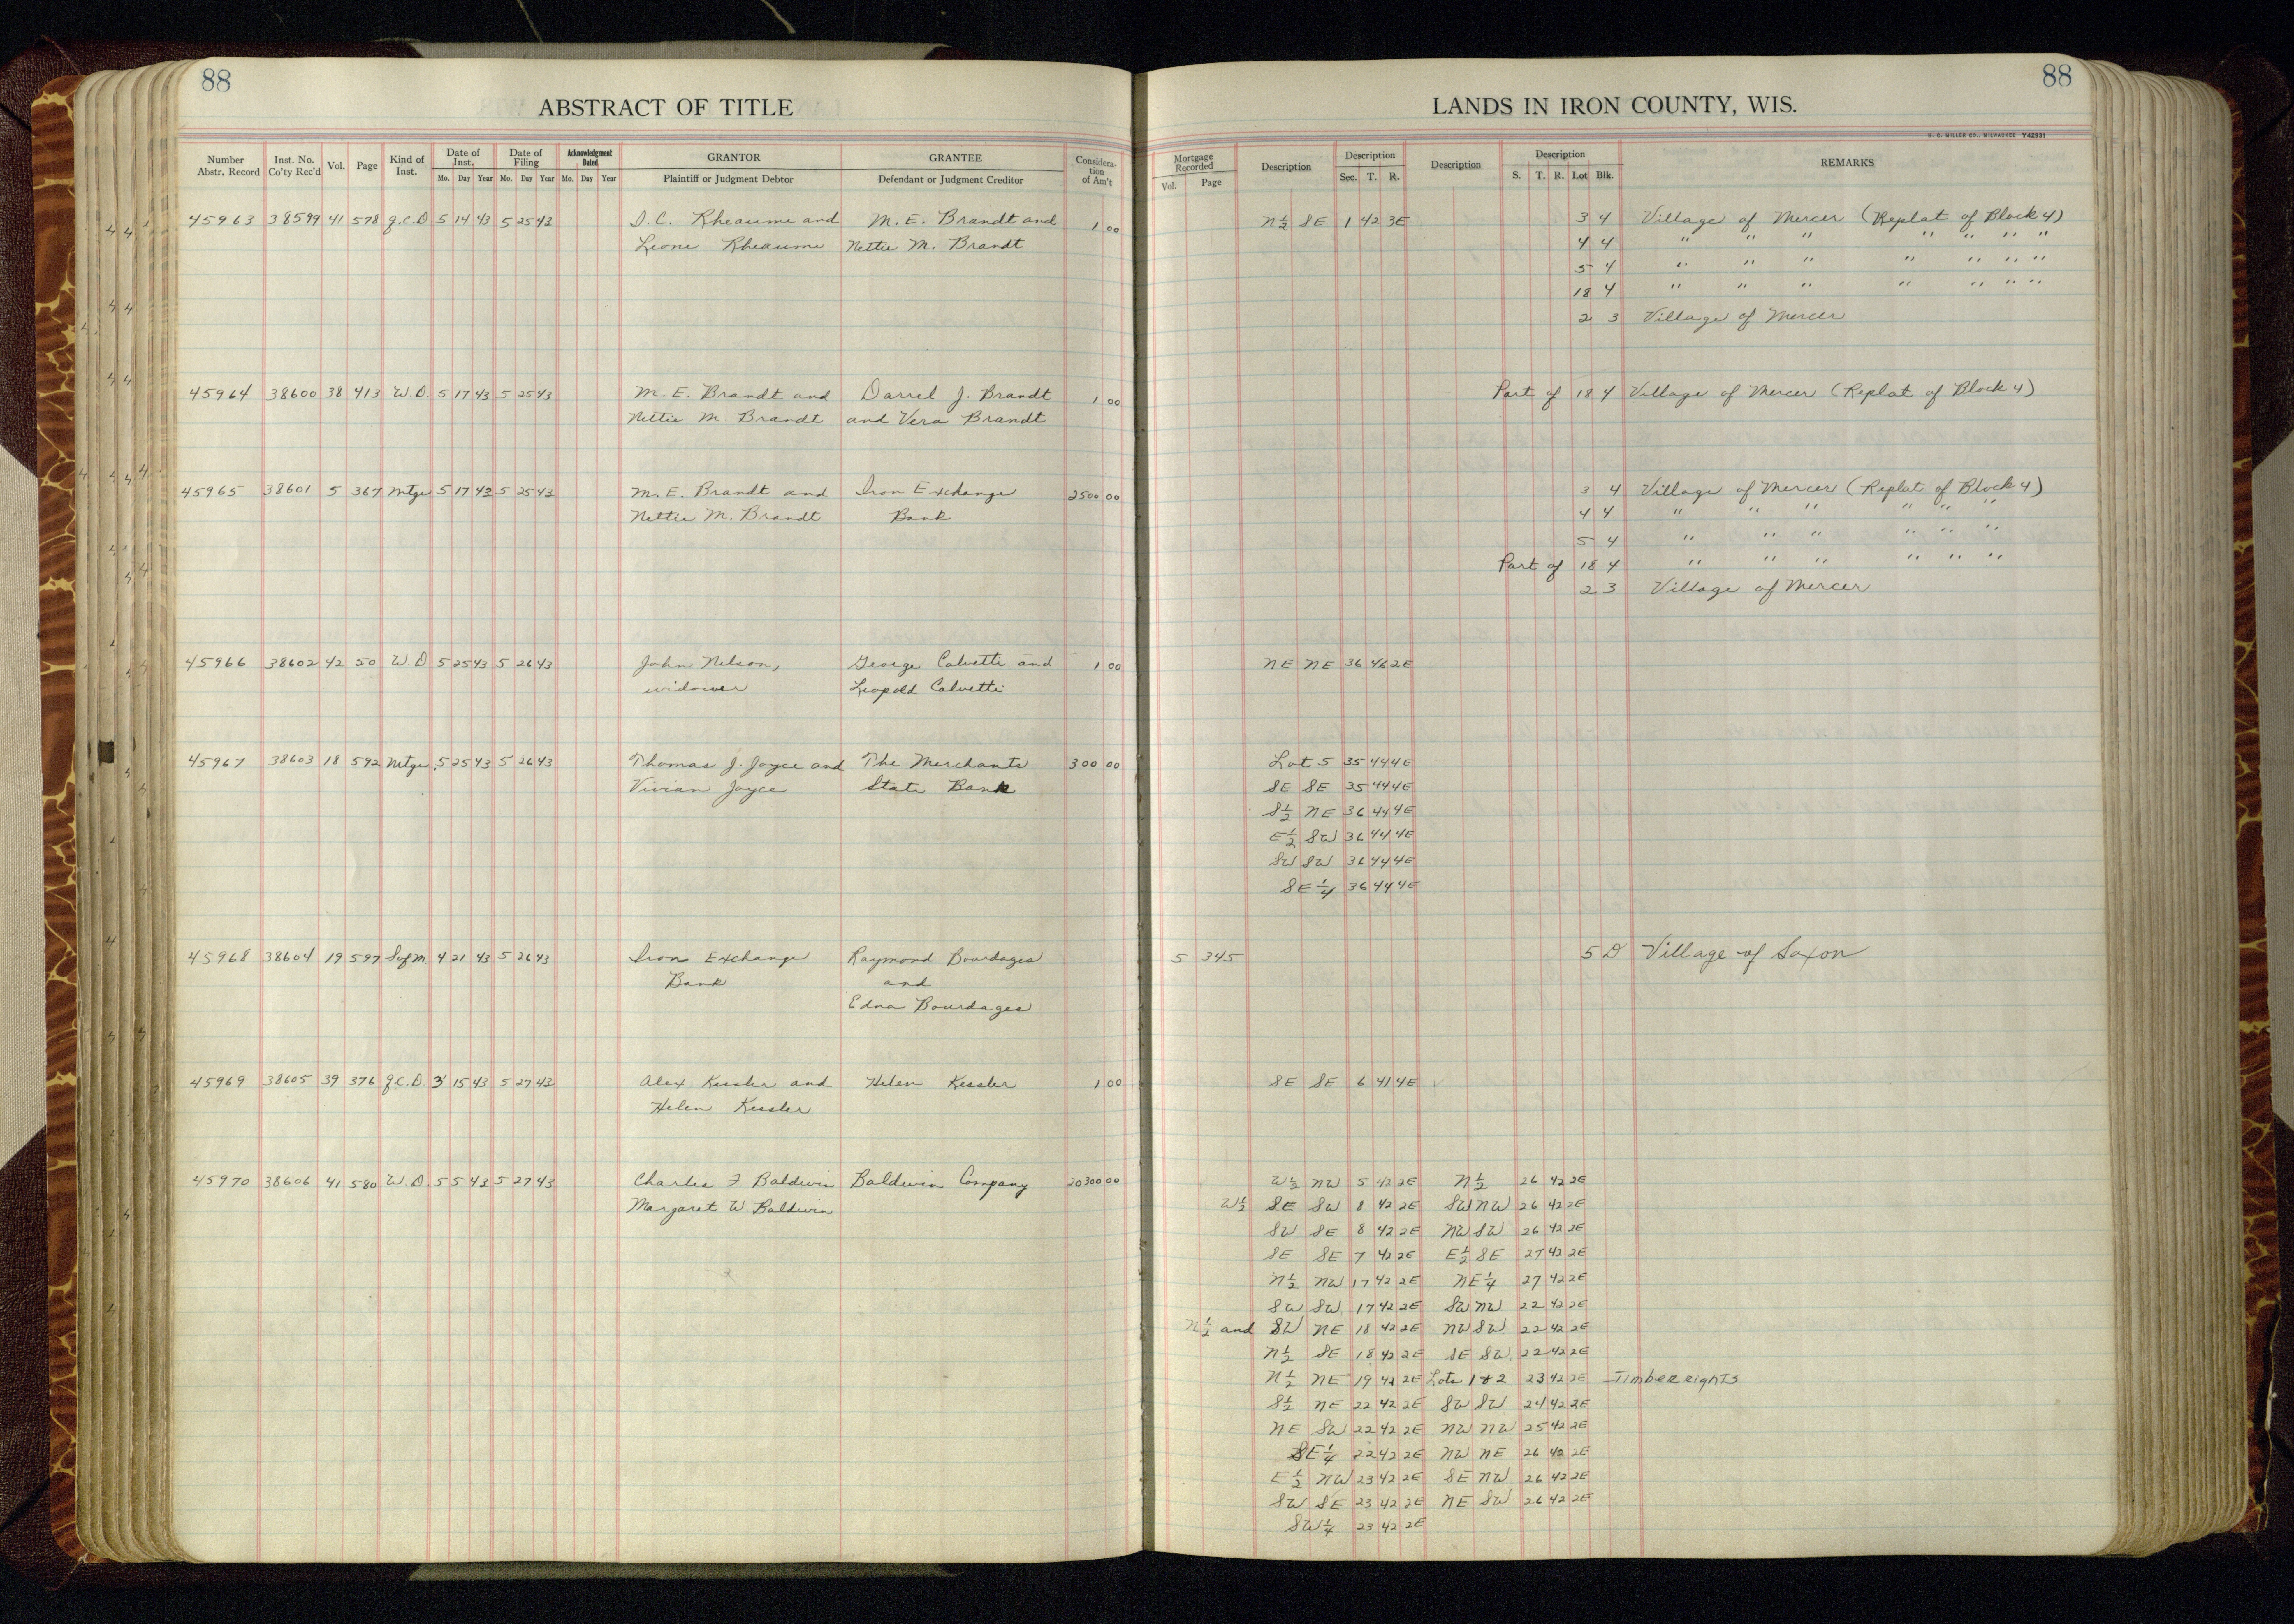 88
ABSTRACT OF TITLE
Number Abstr. Record Inst. No. Co'ty Rec'd Vol. Page Kind of Inst. Date of Inst. Mo. Day Year Date of Filing Mo. Day Year Acknowledgment Dated Mo. Day Year GRANTOR Plaintiff or Judgment Debtor GRANTEE Defendant or Judgment Creditor Consideration of Am't
45963 38599 41 578 Q.C.D 5 14 43 5 25 43 D.C. Rheaume and M.E. Brandt and 1 00
Leone Rheaume Nettie M. Brandt
45964 38600 38 413 W.D. 5 17 43 5 25 43 M.E. Brandt and Darrel J. Brandt 1 00
Nettie M. Brandt and Vera Brandt
45965 38601 5 367 Mtge 5 17 43 5 25 43 M.E. Brandt and Iron Exchange 2500 00
Nettie M. Brandt Bank
45966 38602 42 50 W D 5 25 43 5 26 43 John Nelson, George Calvetti and 1 00
widower Leopold Calvetti
45967 38603 18 592 Mtge 5 25 43 5 26 43 Thomas J. Joyce and The Merchants 300 00
Vivian Joyce State Bank
45968 38604 19 597 S of M 4 21 43 5 26 43 Iron Exchange Raymond Bourdages
Bank and
Edna Bourdages
45969 38605 39 376 Q.C.D. 3 15 43 5 27 43 Alex Kessler and Helen Kessler 1 00
Helen Kessler
45970 38606 41 580 W.D. 5 5 43 5 27 43 Charles F. Baldwin Baldwin Company 20300 00
Margaret W. Baldwin
88
LANDS IN IRON COUNTY, WIS.
H. C. MILLER CO., MILWAUKEE Y42931
Mortgage Recorded Vol. Page Description Description Sec. T. R. Description Description S. T. R. Lot Blk. REMARKS
N½ SE 1 42 3E 3 4 Village of Mercer (Replat of Block 4)
4 4 " " " " " " "
5 4 " " " " " " "
18 4 " " " " " " "
2 3 Village of Mercer
Part of 18 4 Village of Mercer (Replat of Block 4)
3 4 Village of Mercer (Replat of Block 4)
4 4 " " " " " "
5 4 " " " " " "
Part of 18 4 " " " " " "
2 3 Village of Mercer
NE NE 36 46 2E
Lot 5 35 44 4E
SE SE 35 44 4E
S½ NE 36 44 4E
E½ SW 36 44 4E
SW SW 36 44 4E
SE¼ 36 44 4E
5 345 5 D Village of Saxon
SE SE 6 41 4E
W½ NW 5 42 2E N½ 26 42 2E
W½ SE SW 8 42 2E SW NW 26 42 2E
SW SE 8 42 2E NW SW 26 42 2E
SE SE 7 42 2E E½ SE 27 42 2E
N½ NW 17 42 2E NE¼ 27 42 2E
SW SW 17 42 2E SW NW 22 42 2E
N½ and SW NE 18 42 2E NW SW 22 42 2E
N½ SE 18 42 2E SE SW 22 42 2E
N½ NE 19 42 2E Lots 1 & 2 23 42 2E Timber rights
S½ NE 22 42 2E SW SW 24 42 2E
NE SW 22 42 2E NW NW 25 42 2E
SE¼ 22 42 2E NW NE 26 42 2E
E½ NW 23 42 2E SE NW 26 42 2E
SW SE 23 42 2E NE SW 26 42 2E
SW¼ 23 42 2E